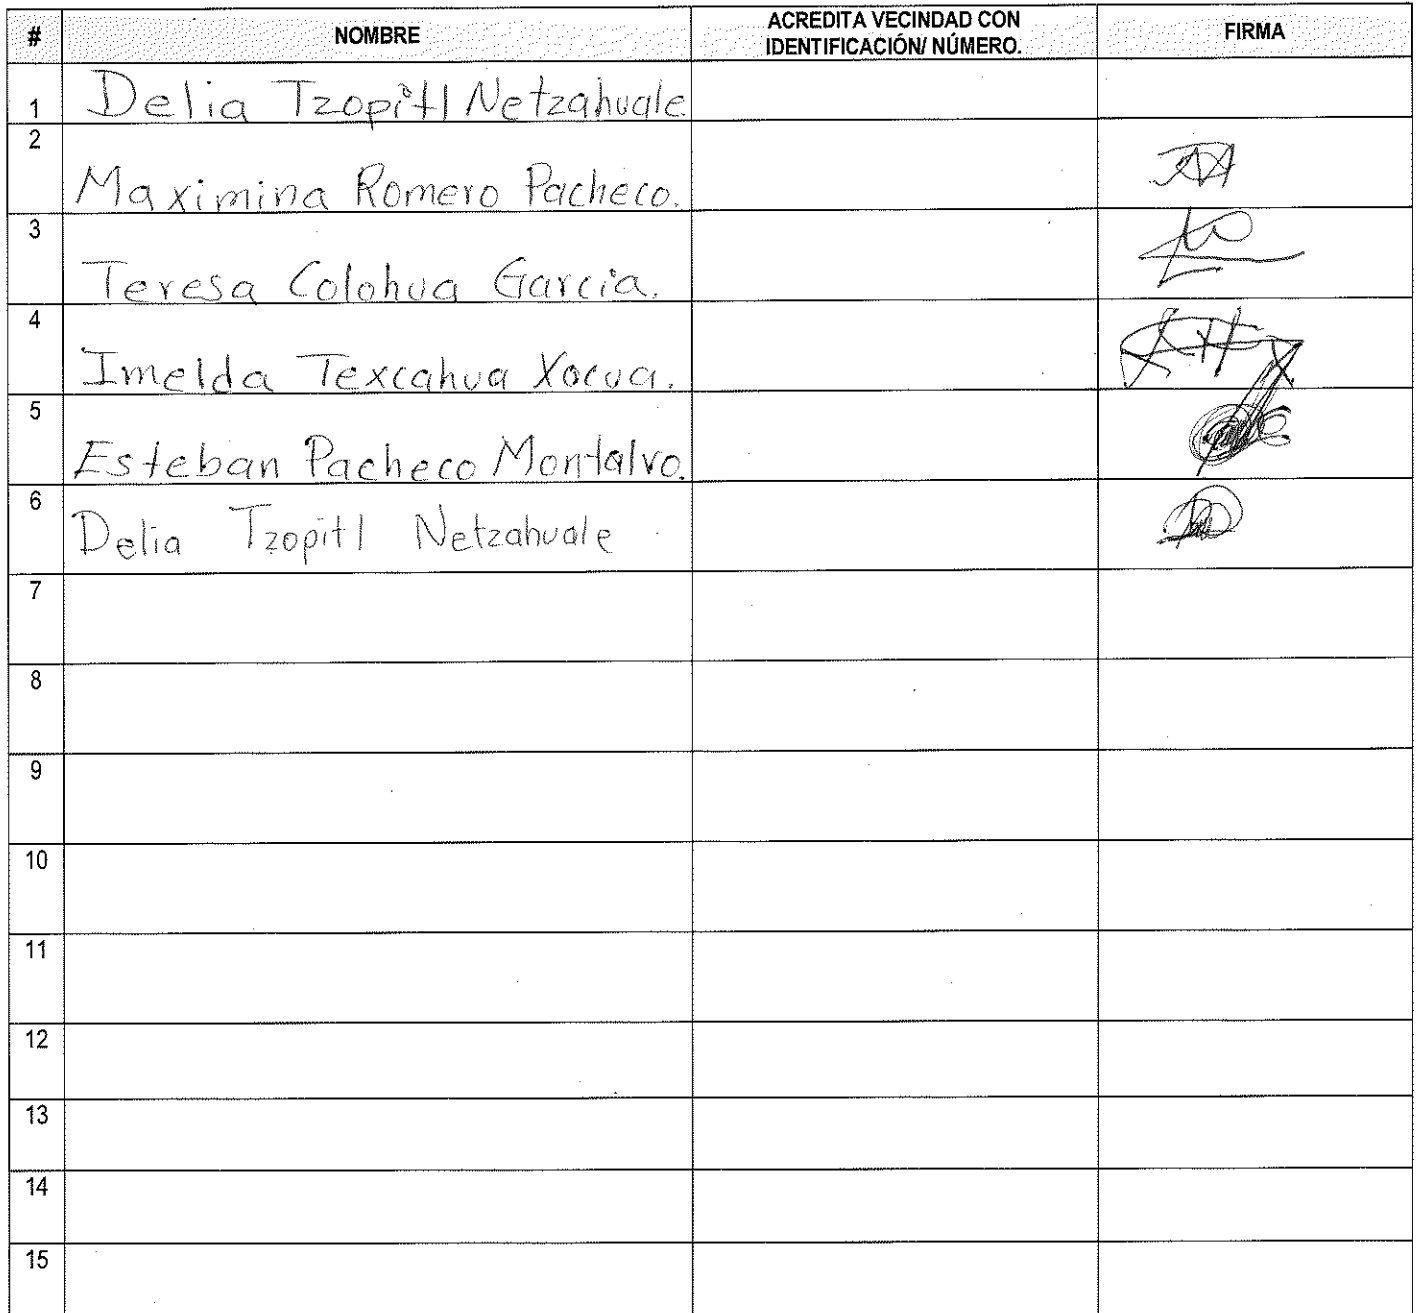 # NOMBRE ACREDITA VECINDAD CON IDENTIFICACIÓN/ NÚMERO. FIRMA
1 Delia Tzopitl Netzahuale
2 Maximina Romero Pacheco.
3 Teresa Colohua Garcia.
4 Imelda Texcahua Xocua.
5 Esteban Pacheco Montalvo.
6 Delia Tzopitl Netzahuale
7
8
9
10
11
12
13
14
15